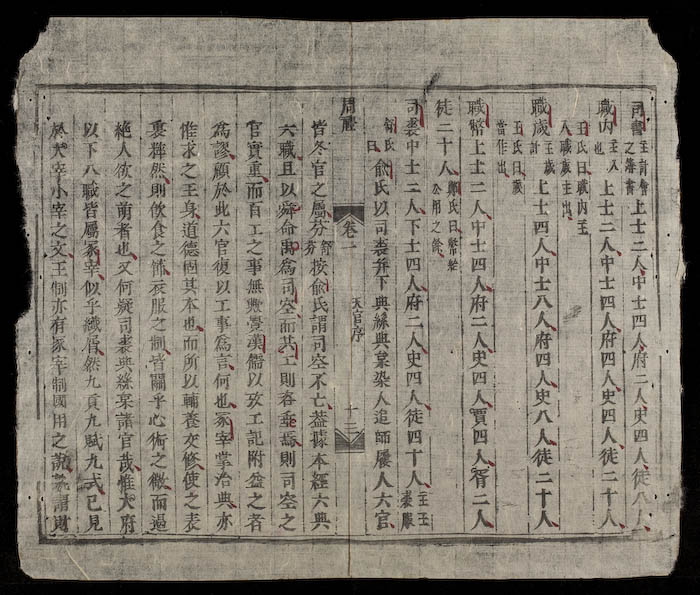 司書主計會之簿書上士二人中士四人府二人史四人徒八人
職内主入也上士二人中士四人府四人史四人徒二十人
王氏曰職内主入職歲主出
職歲主歲計上士四人中士八人府四人史八人徒二十人
王氏曰歲當作出
職幣上士二人中士四人府二人史四人賈四人胥二人
徒二十人鄭氏曰幣給公用之餘
司裘中士二人下士四人府二人史四人徒四十人主王裘服
氏曰兪氏以司裘并下典絲典枲染人追師屨人六官
周禮 卷一 天官序 十三
皆冬官之屬芬舒芬按兪氏謂司空不亡蓋據本經六典
六職且以舜命禹爲司空而共工則咨垂焉則司空之
官實重而百工之事無漢儒以攷工記附益之者
爲謬顧於此六官復以工事爲言何也冢宰掌治典亦
惟求之王身道德固其本也而所以輔養交修使之表
裏粹然則飲食之衣服之制皆關乎心術之微而遏
絕人欲之萌者也又何疑司裘典絲枲諸官哉惟大府
以下八職皆屬冢宰似乎纖屑然九貢九賦九式已見
於大宰小宰之文王制亦有冢宰制國用之說蓋謂財